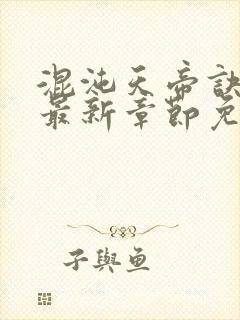 混沌天帝訣
最新章節免
子與魚